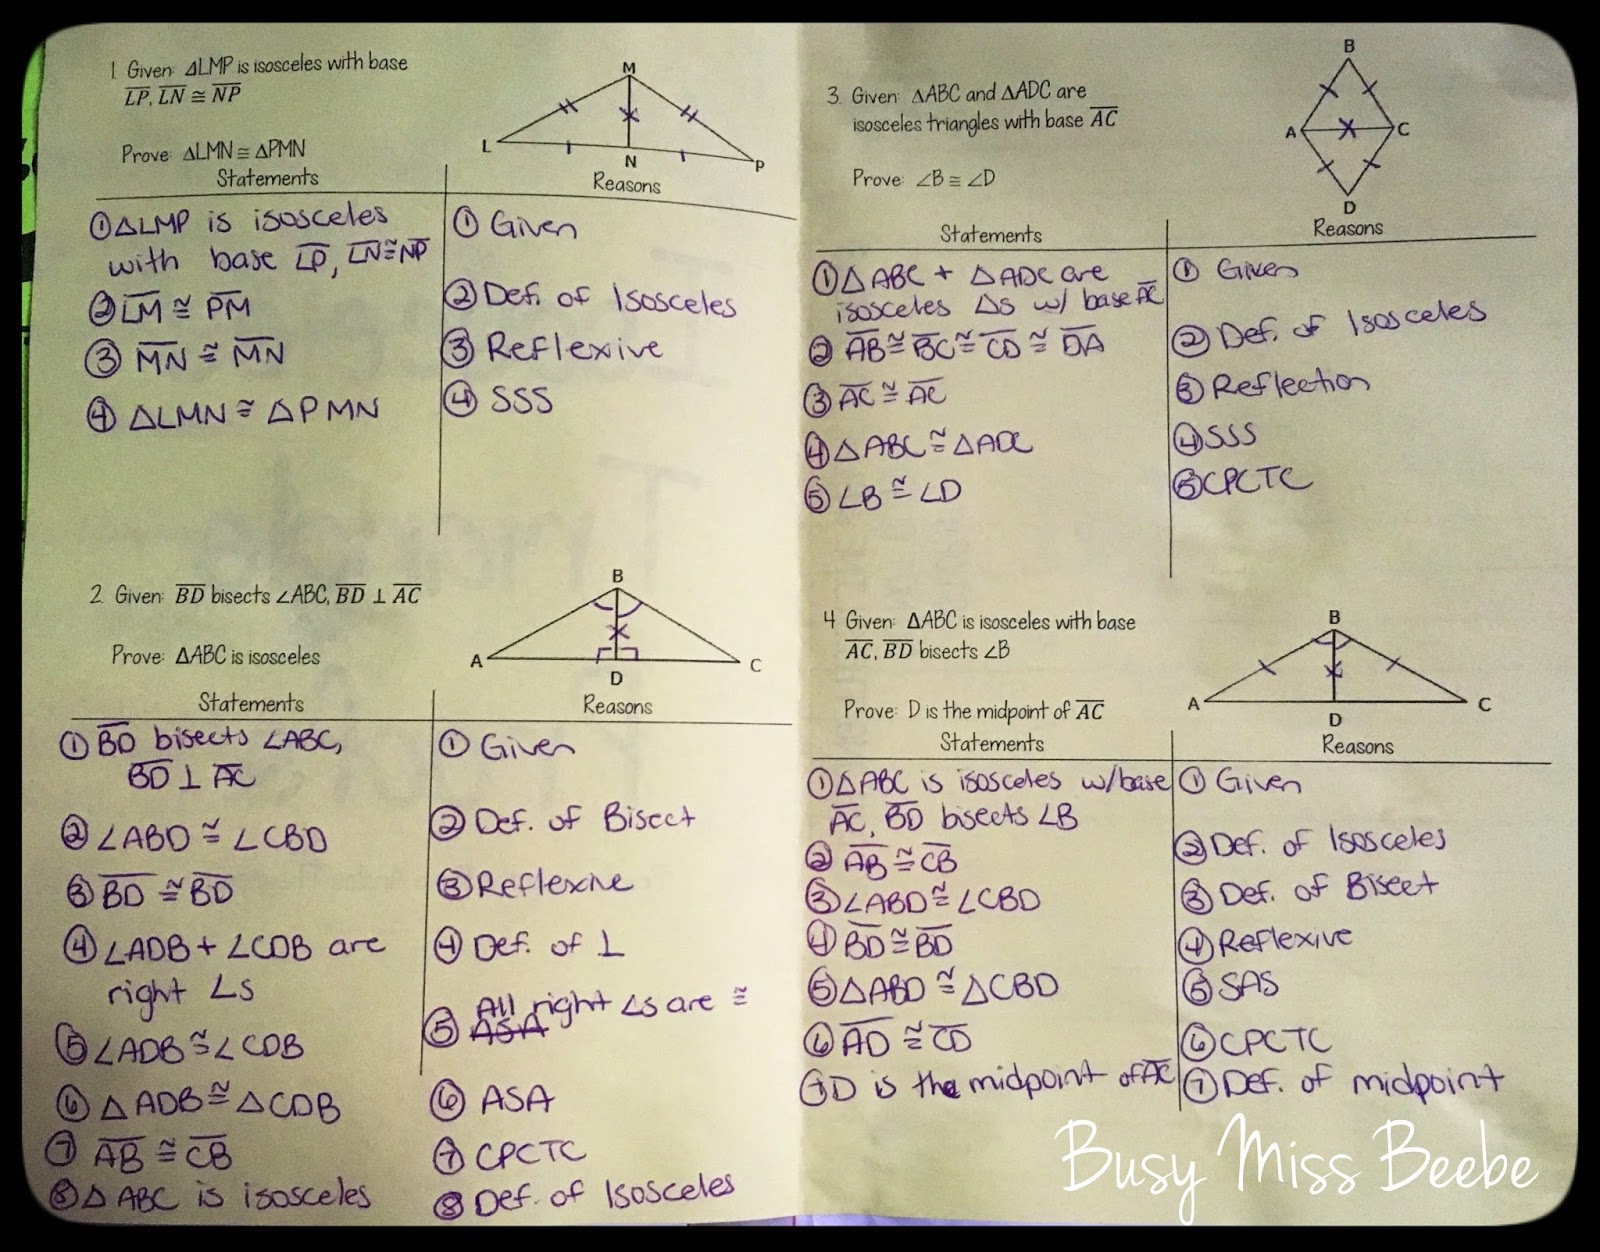 1. Given: ΔLMP is isosceles with base
LP, LN ≅ NP
Prove: ΔLMN ≅ ΔPMN
M
L
N
P
Statements
Reasons
① ΔLMP is isosceles
with base LP, LN≅NP
① Given
② LM ≅ PM
② Def. of Isosceles
③ MN ≅ MN
③ Reflexive
④ ΔLMN ≅ ΔPMN
④ SSS
2. Given: BD bisects ∠ABC, BD ⊥ AC
Prove: ΔABC is isosceles
B
A
D
C
Statements
Reasons
① BD bisects ∠ABC,
BD ⊥ AC
① Given
② ∠ABD ≅ ∠CBD
② Def. of Bisect
③ BD ≅ BD
③ Reflexive
④ ∠ADB + ∠CDB are
right ∠s
④ Def. of ⊥
⑤ ∠ADB ≅ ∠CDB
All right ∠s are ≅
⑤ ASA
⑥ ΔADB ≅ ΔCDB
⑥ ASA
⑦ AB ≅ CB
⑦ CPCTC
⑧ ΔABC is isosceles
⑧ Def. of Isosceles
3. Given: ΔABC and ΔADC are
isosceles triangles with base AC
Prove: ∠B ≅ ∠D
B
A
C
D
Statements
Reasons
① ΔABC + ΔADC are
isosceles Δs w/ base AC
① Given
② AB≅BC≅CD≅DA
② Def. of Isosceles
③ AC ≅ AC
③ Reflection
④ ΔABC ≅ ΔADC
④ SSS
⑤ ∠B ≅ ∠D
⑤ CPCTC
4 Given: ΔABC is isosceles with base
AC, BD bisects ∠B
Prove: D is the midpoint of AC
B
A
D
C
Statements
Reasons
① ΔABC is isosceles w/base
AC, BD bisects ∠B
① Given
② AB ≅ CB
② Def. of Isosceles
③ ∠ABD ≅ ∠CBD
③ Def. of Bisect
④ BD ≅ BD
④ Reflexive
⑤ ΔABD ≅ ΔCBD
⑤ SAS
⑥ AD ≅ CD
⑥ CPCTC
⑦ D is the midpoint of AC
⑦ Def. of midpoint
Busy Miss Beebe